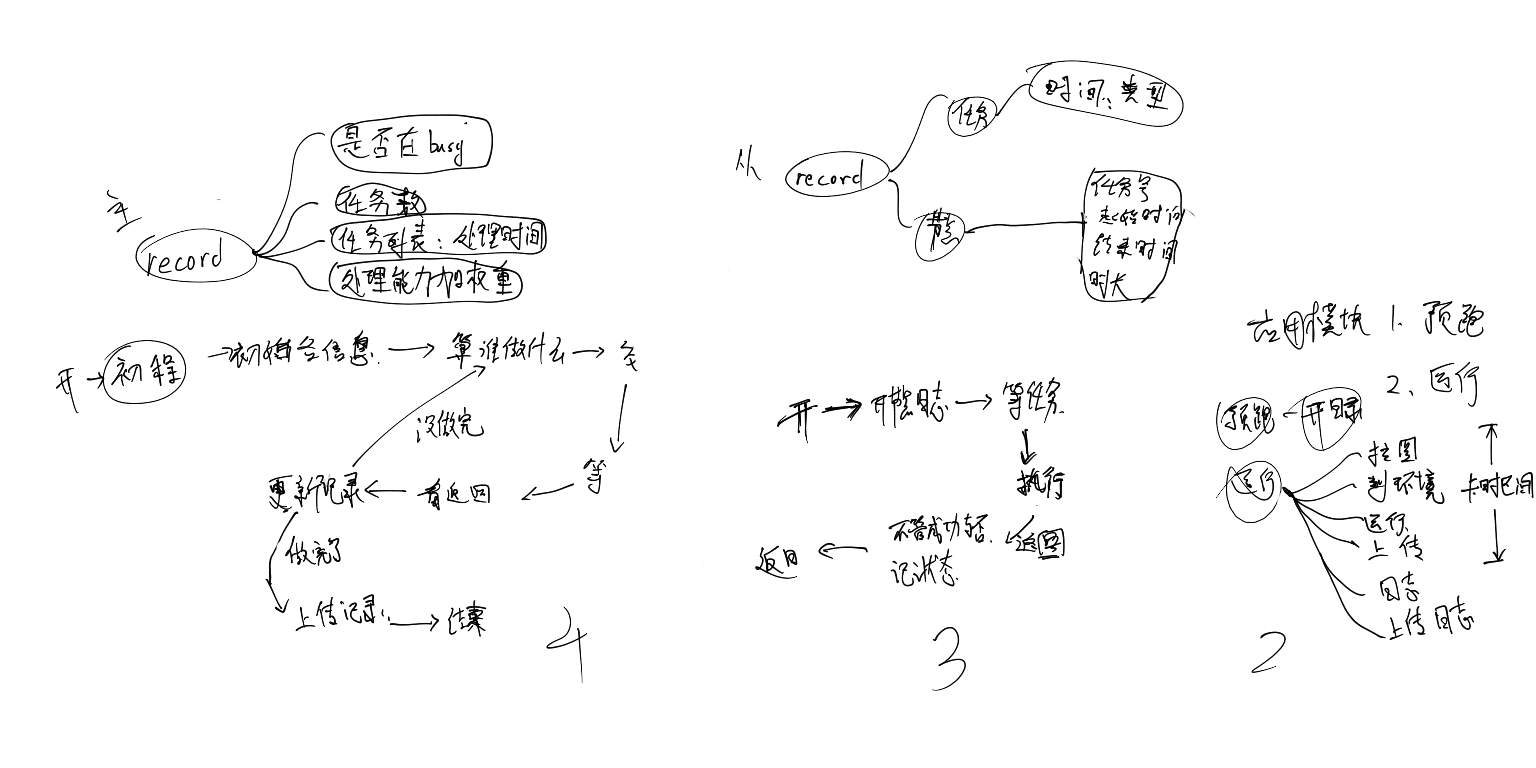 主
record
是否在busy
任务数
任务列表：处理时间
处理能力加权重
开
初程
初始各信息
算谁做什么
等
没做完
看返回
更新记录
做完了
上传记录
结束
4
从
record
任务
时间、类型
任务号
起始时间
结束时间
时长
开
开整日志
等任务
执行
返回
不管成功与否
记状态
返回
3
应用模块 1、预跑
2、运行
预跑
开目录
运行
拉图
判环境
运行
上传
日志
上传日志
卡时间
2